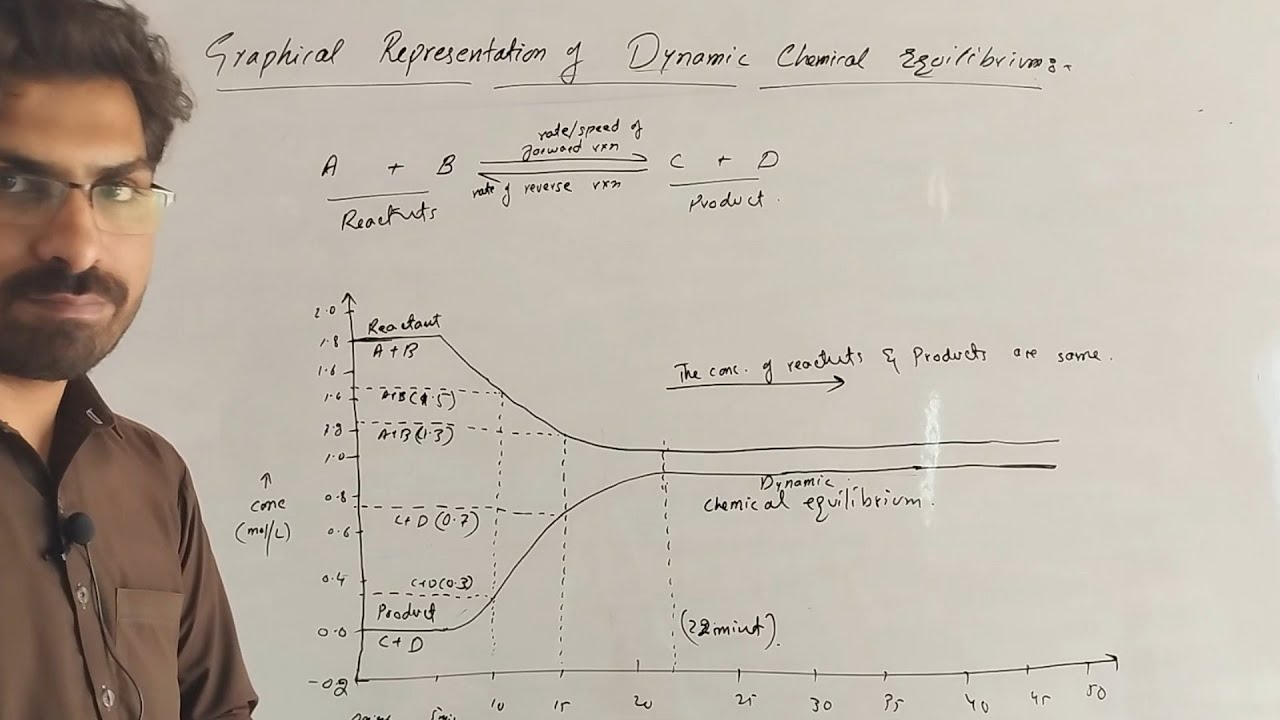 Graphical Representation of Dynamic Chemical Equilibrium:-
rate/speed of
forward rxn
A + B C + D
rate of reverse rxn
Reactuts
Product.
2.0
Reactant
1.8
A+B
1.6
1.6
A+B(1.5)
1.2
A+B(1.3)
1.0
The conc. of reactuts & Products are same.
Dynamic
chemical equilibrium.
↑
conc
(mol/L)
0.8
C+D(0.7)
0.6
0.4
C+D(0.3)
Product
0.0
C+D
(22 miut).
-0.2
10 15 20 25 30 35 40 45 50